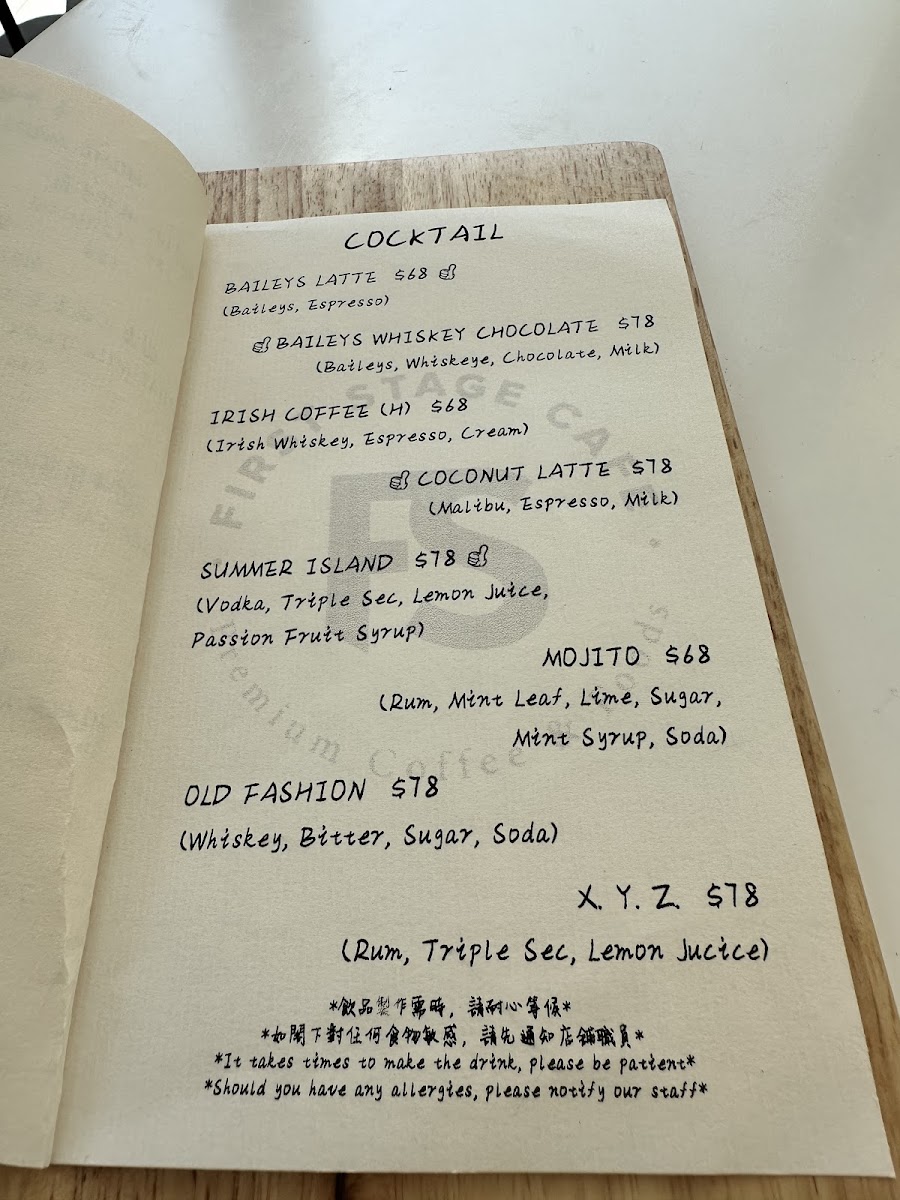 COCKTAIL
BAILEYS LATTE $68
(Baileys, Espresso)
BAILEYS WHISKEY CHOCOLATE $78
(Baileys, Whiskeye, Chocolate, Milk)
IRISH COFFEE (H) $68
(Irish Whiskey, Espresso, Cream)
COCONUT LATTE $78
(Malibu, Espresso, Milk)
SUMMER ISLAND $78
(Vodka, Triple Sec, Lemon Juice,
Passion Fruit Syrup)
MOJITO $68
(Rum, Mint Leaf, Lime, Sugar,
Mint Syrup, Soda)
OLD FASHION $78
(Whiskey, Bitter, Sugar, Soda)
X. Y. Z. $78
(Rum, Triple Sec, Lemon Jucice)
*飲品製作需時，請耐心等候*
*如閣下對任何食物敏感，請先通知店鋪職員*
*It takes times to make the drink, please be patient*
*Should you have any allergies, please notify our staff*
FIRST STAGE CAFE
FS
Premium Coffee & Foods